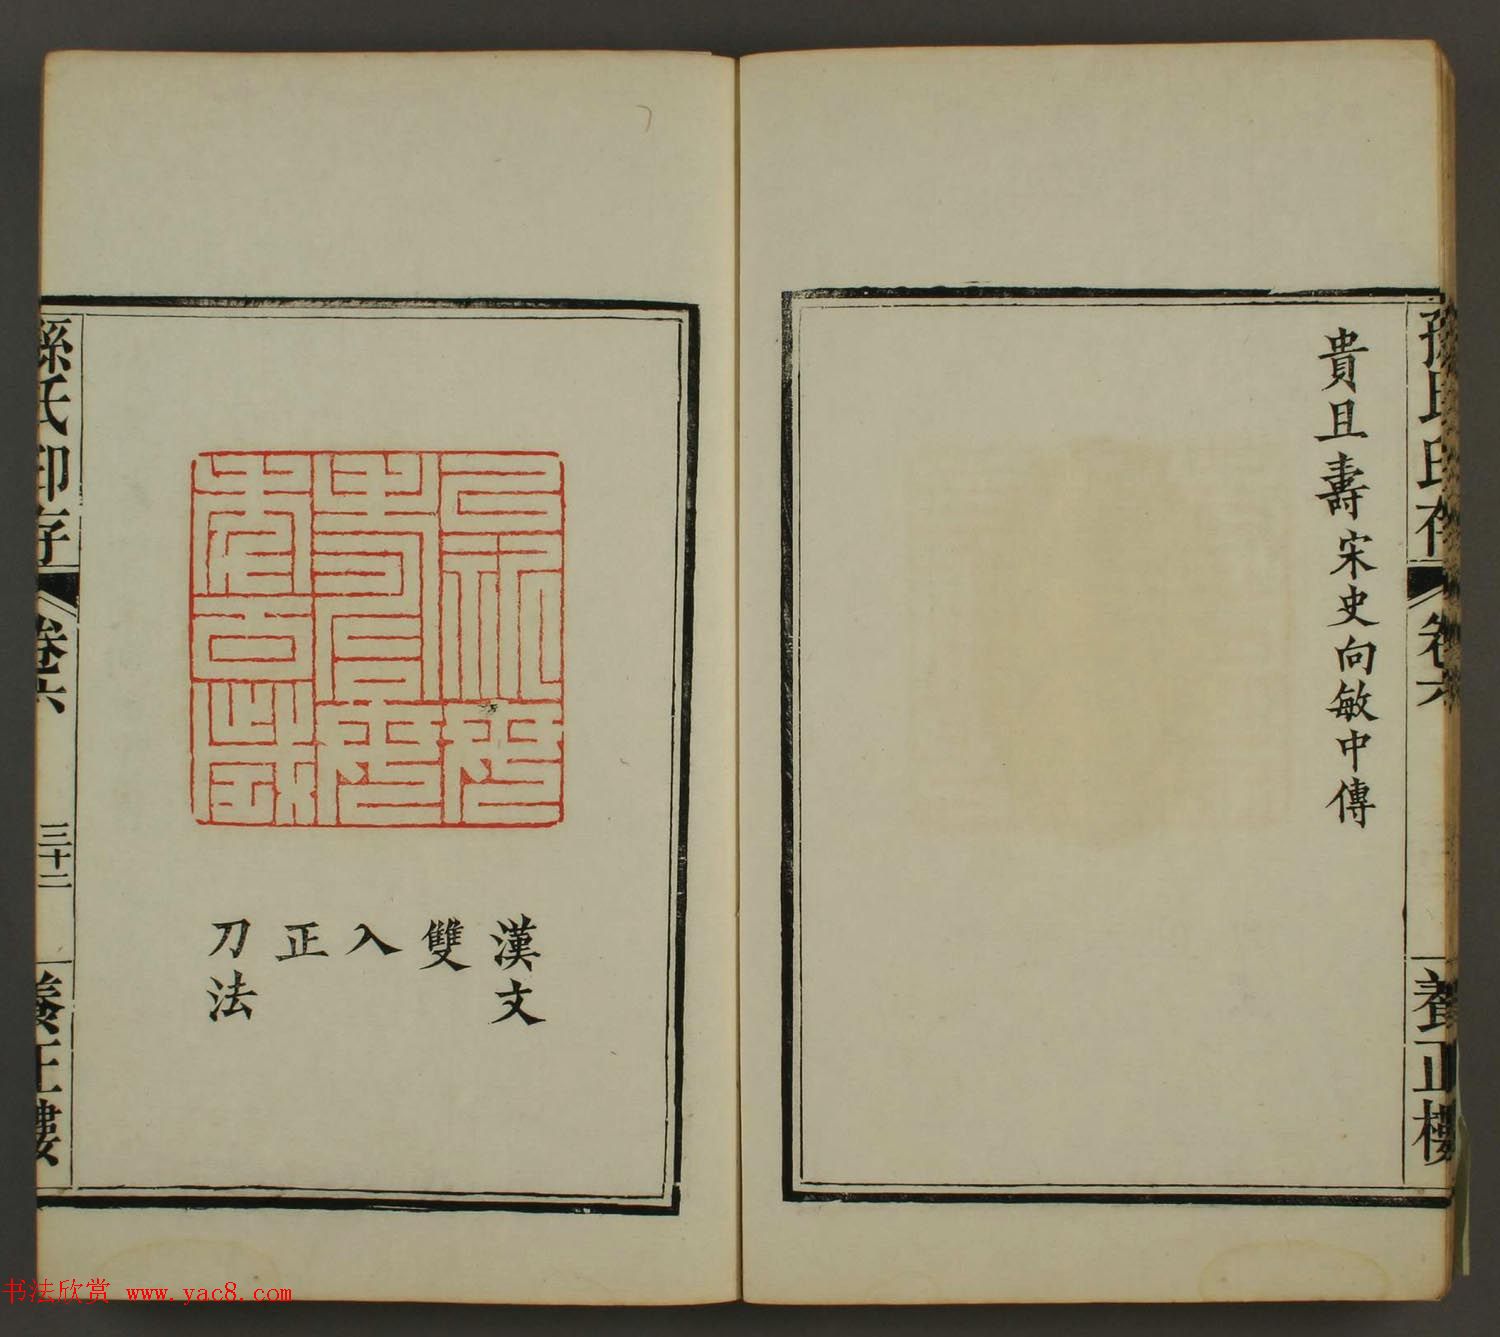 孫氏印存
卷六
養正樓
貴且壽宋史向敏中傳
漢文
雙
入
正
刀法
孫氏印存
卷六
三十二
養正樓
书法欣赏 www.yac8.com